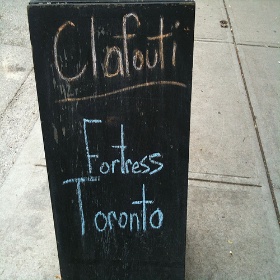 Clafouti
Fortress
Toronto